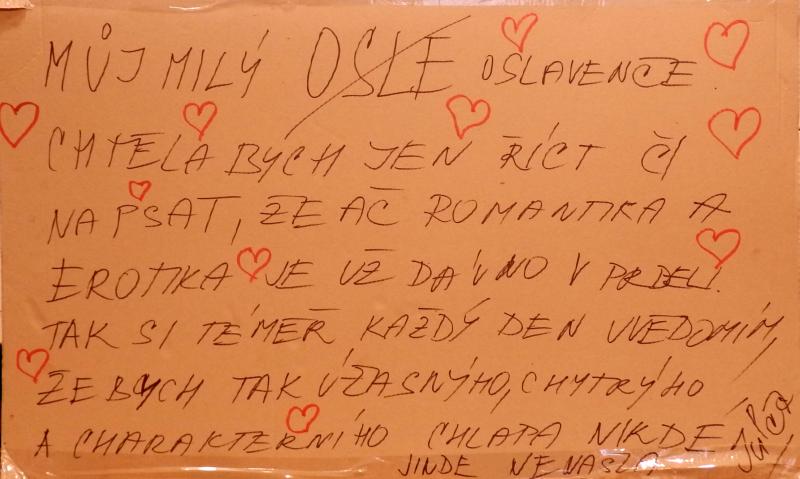 MŮJ MILÝ OSLE OSLAVENČE.
CHTĚLA BYCH JEN ŘÍCT ČI
NAPSAT, ŽE AČ ROMANTIKA A
EROTIKA JE UŽ DÁVNO V PRDELI.
TAK SI TÉMĚŘ KAŽDÝ DEN UVĚDOMÍM,
ŽE BYCH TAK ÚŽASNÝHO, CHYTRÝHO
A CHARAKTERNÍHO CHLAPA NIKDE
JINDE NENAŠLA